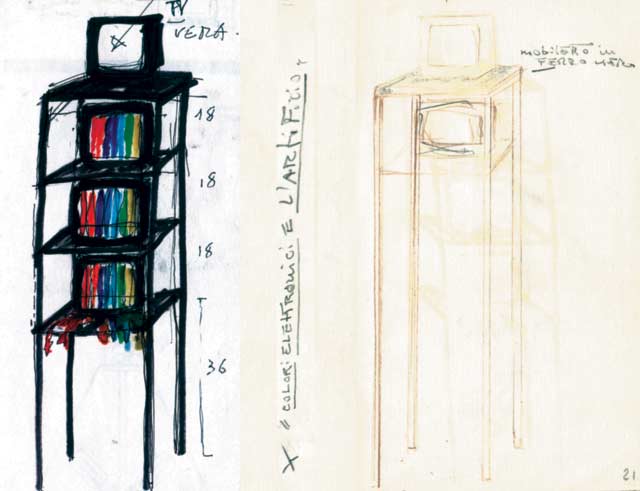 TV
VERA.
18
18
18
36
X "COLORI ELETTRONICI E L'ARTIFIZIO"
mobiletto in
FERRO NERO
21